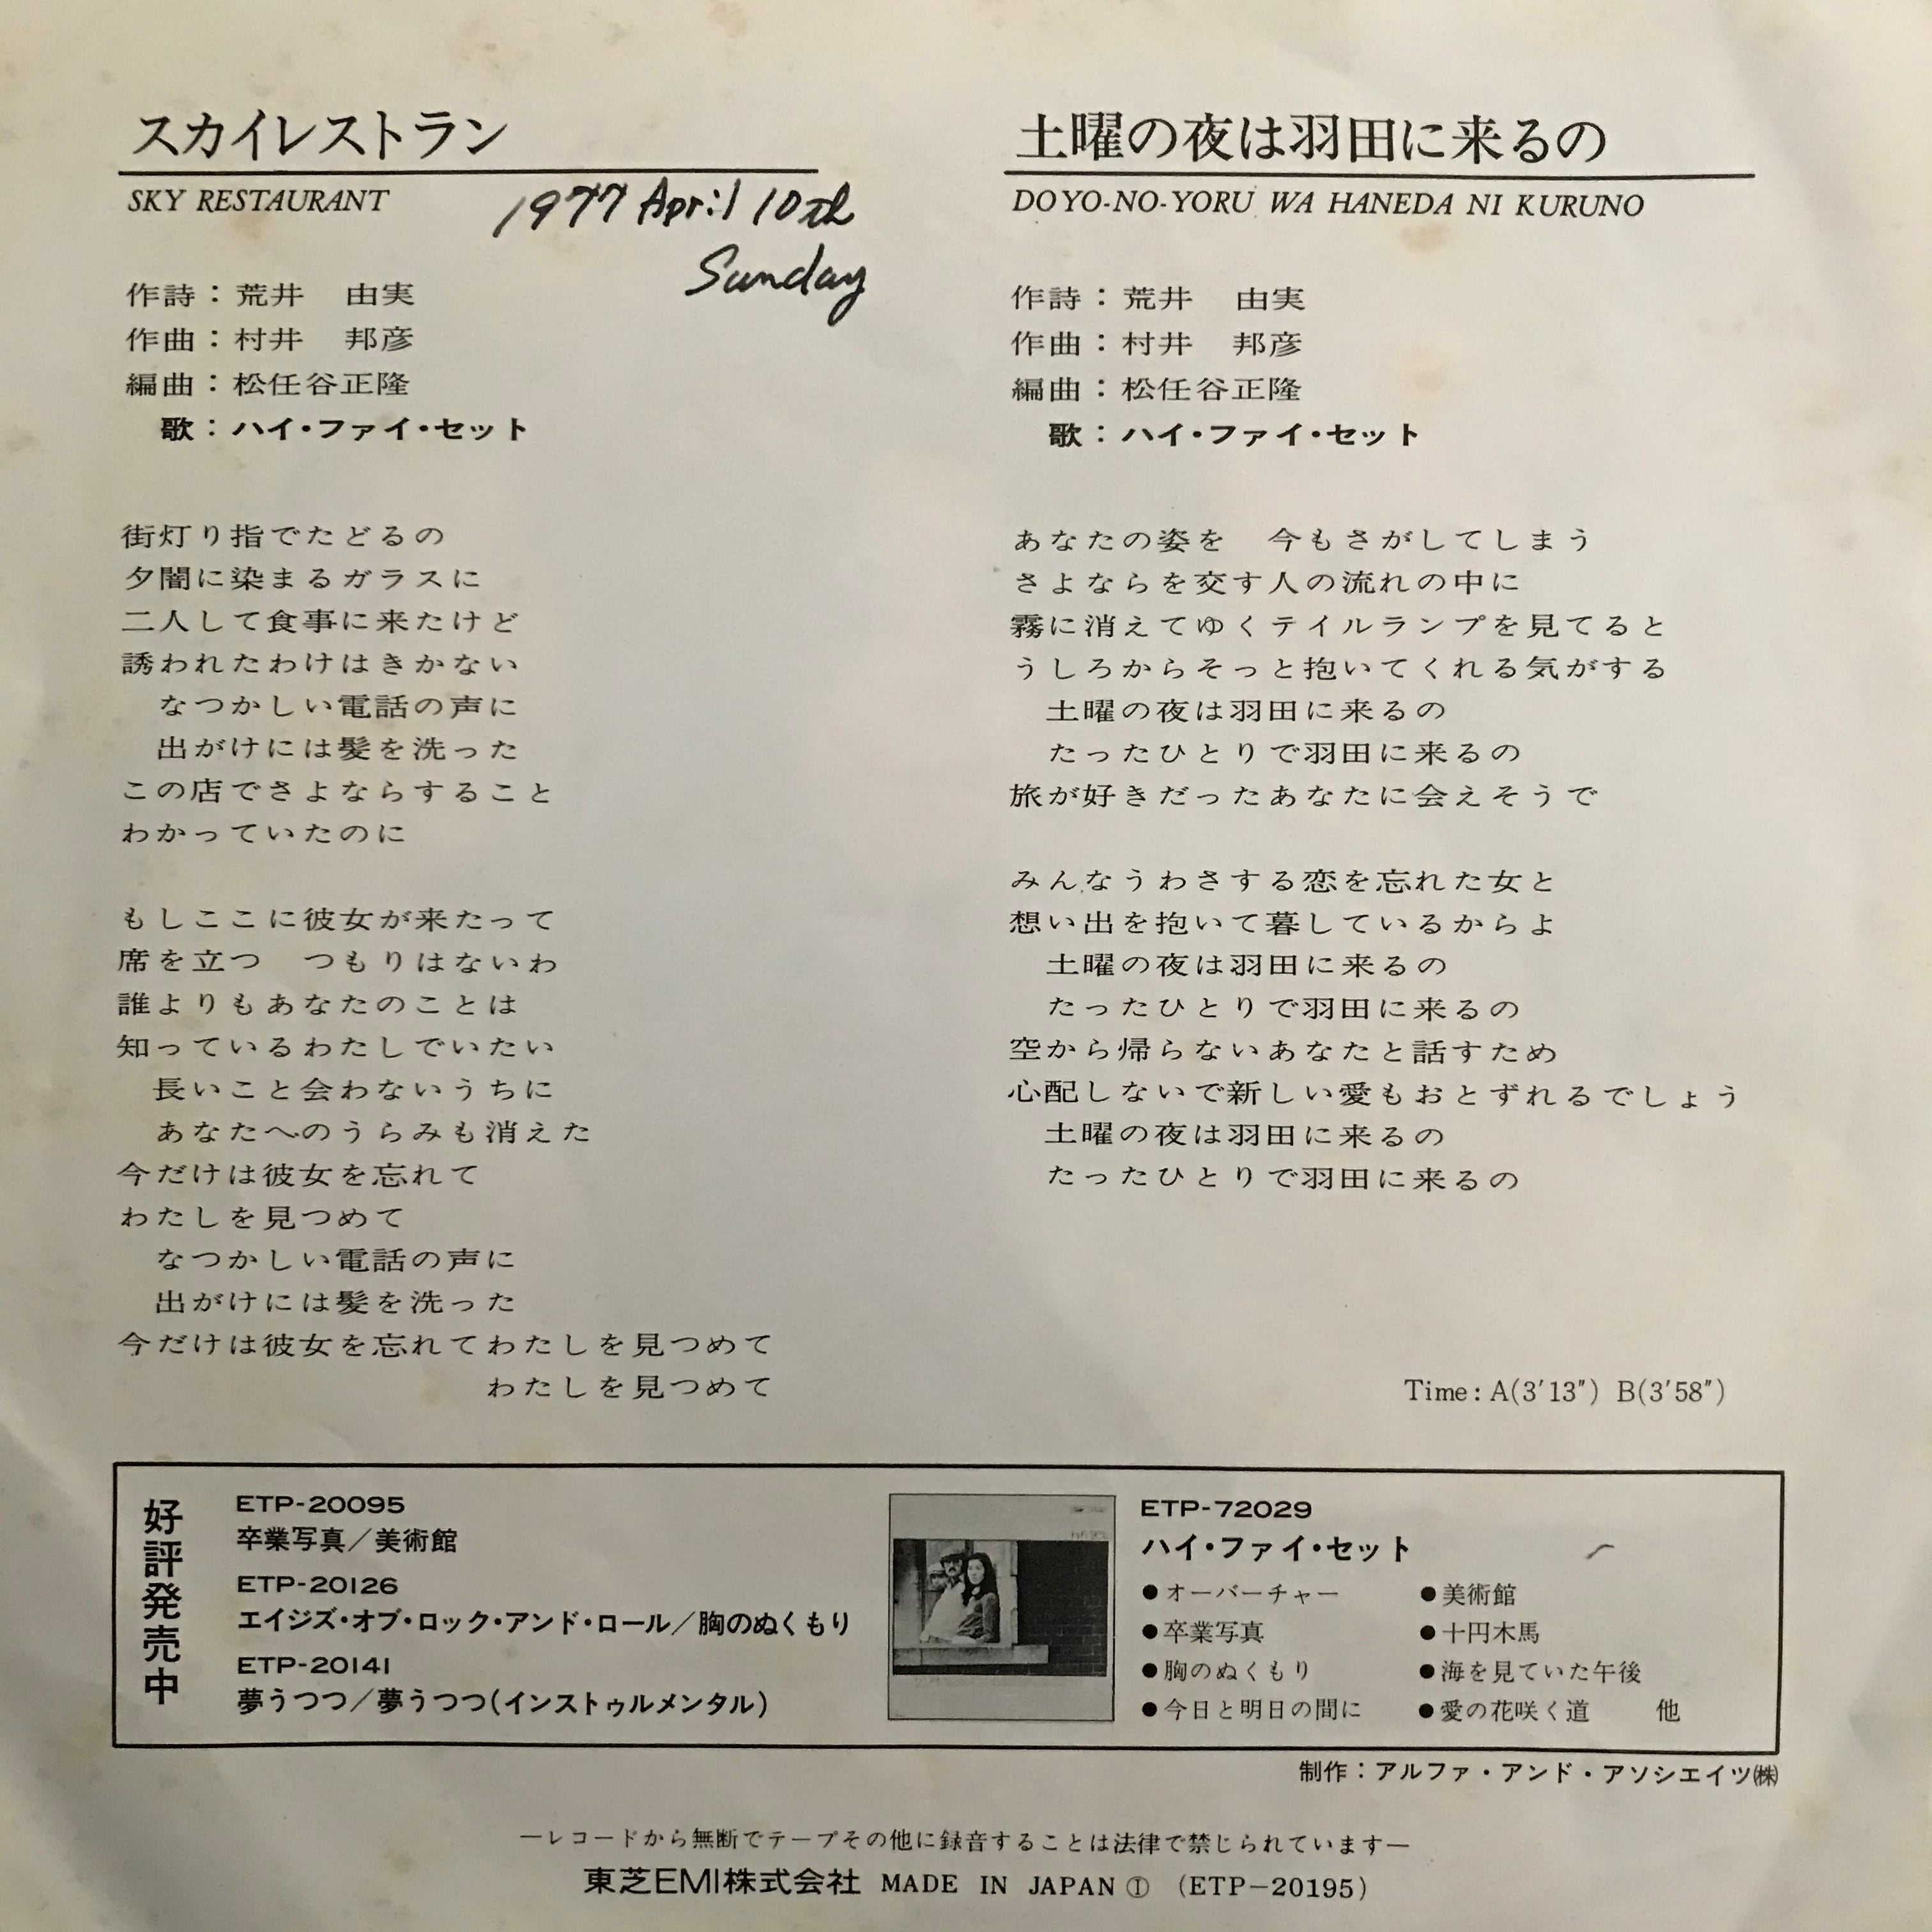 スカイレストラン
SKY RESTAURANT
1977 April 10th
Sunday
作詩：荒井　由実
作曲：村井　邦彦
編曲：松任谷正隆
歌：ハイ・ファイ・セット
街灯り指でたどるの
夕闇に染まるガラスに
二人して食事に来たけど
誘われたわけはきかない
なつかしい電話の声に
出がけには髪を洗った
この店でさよならすること
わかっていたのに
もしここに彼女が来たって
席を立つ　つもりはないわ
誰よりもあなたのことは
知っているわたしでいたい
長いこと会わないうちに
あなたへのうらみも消えた
今だけは彼女を忘れて
わたしを見つめて
なつかしい電話の声に
出がけには髪を洗った
今だけは彼女を忘れてわたしを見つめて
わたしを見つめて
土曜の夜は羽田に来るの
DOYO-NO-YORU WA HANEDA NI KURUNO
作詩：荒井　由実
作曲：村井　邦彦
編曲：松任谷正隆
歌：ハイ・ファイ・セット
あなたの姿を　今もさがしてしまう
さよならを交す人の流れの中に
霧に消えてゆくテイルランプを見てると
うしろからそっと抱いてくれる気がする
土曜の夜は羽田に来るの
たったひとりで羽田に来るの
旅が好きだったあなたに会えそうで
みんなうわさする恋を忘れた女と
想い出を抱いて暮しているからよ
土曜の夜は羽田に来るの
たったひとりで羽田に来るの
空から帰らないあなたと話すため
心配しないで新しい愛もおとずれるでしょう
土曜の夜は羽田に来るの
たったひとりで羽田に来るの
Time : A(3′13″) B(3′58″)
好評発売中
ETP-20095
卒業写真／美術館
ETP-20126
エイジズ・オブ・ロック・アンド・ロール／胸のぬくもり
ETP-20141
夢うつつ／夢うつつ(インストゥルメンタル)
ETP-72029
ハイ・ファイ・セット
●オーバーチャー
●卒業写真
●胸のぬくもり
●今日と明日の間に
●美術館
●十円木馬
●海を見ていた午後
●愛の花咲く道　他
制作：アルファ・アンド・アソシエイツ㈱
―レコードから無断でテープその他に録音することは法律で禁じられています―
東芝EMI株式会社 MADE IN JAPAN Ⓘ (ETP-20195)